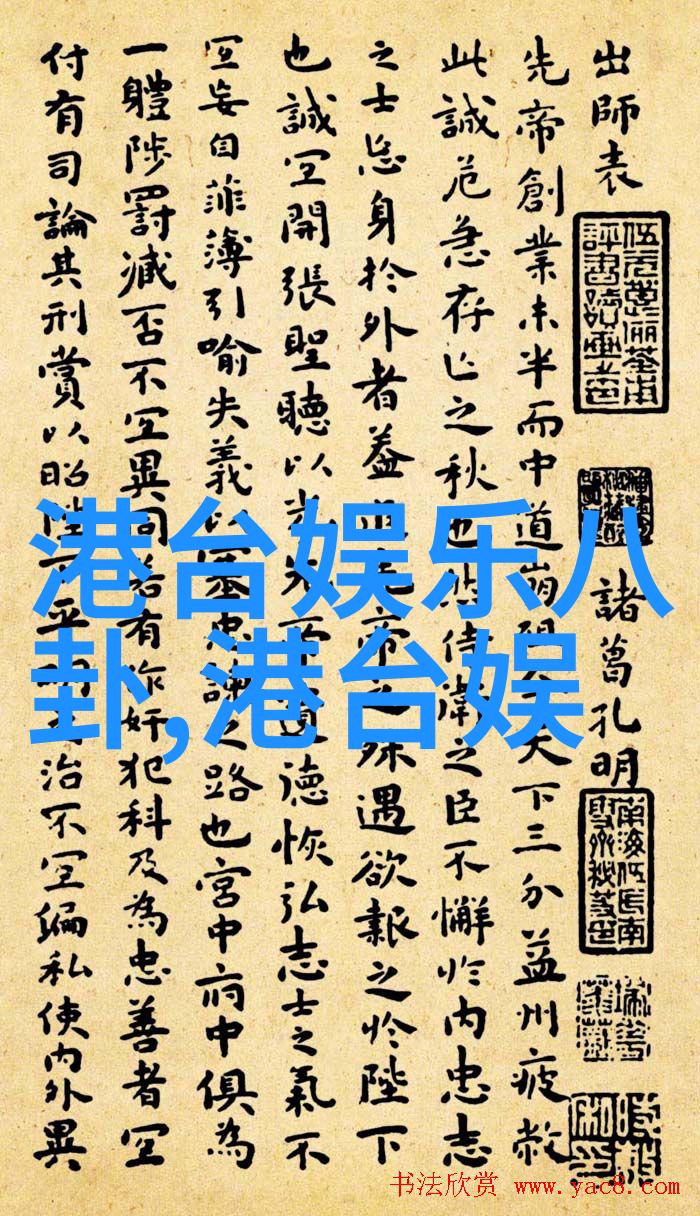 港台娱乐八
卦,港台娱
出師表
諸葛孔明
先帝創業未半而中道崩殂今天下三分益州疲敝
此誠危急存亡之秋也然侍衛之臣不懈於内忠志
之士忘身於外者蓋追先帝之殊遇欲報之於陛下
也誠宜開張聖聽以光先帝遺德恢弘志士之氣不
宜妄自菲薄引喻失義以塞忠諫之路也宮中府中俱為
一體陟罰臧否不宜異同若有作奸犯科及為忠善者宜
付有司論其刑賞以昭陛下平明之治不宜偏私使内外異
书法欣赏 www.yac8.com